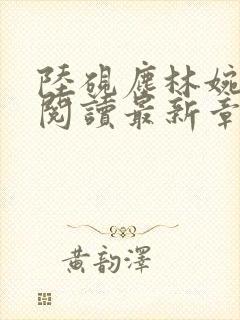 陸硯塵林婉
閱讀最新章
黃韵澤